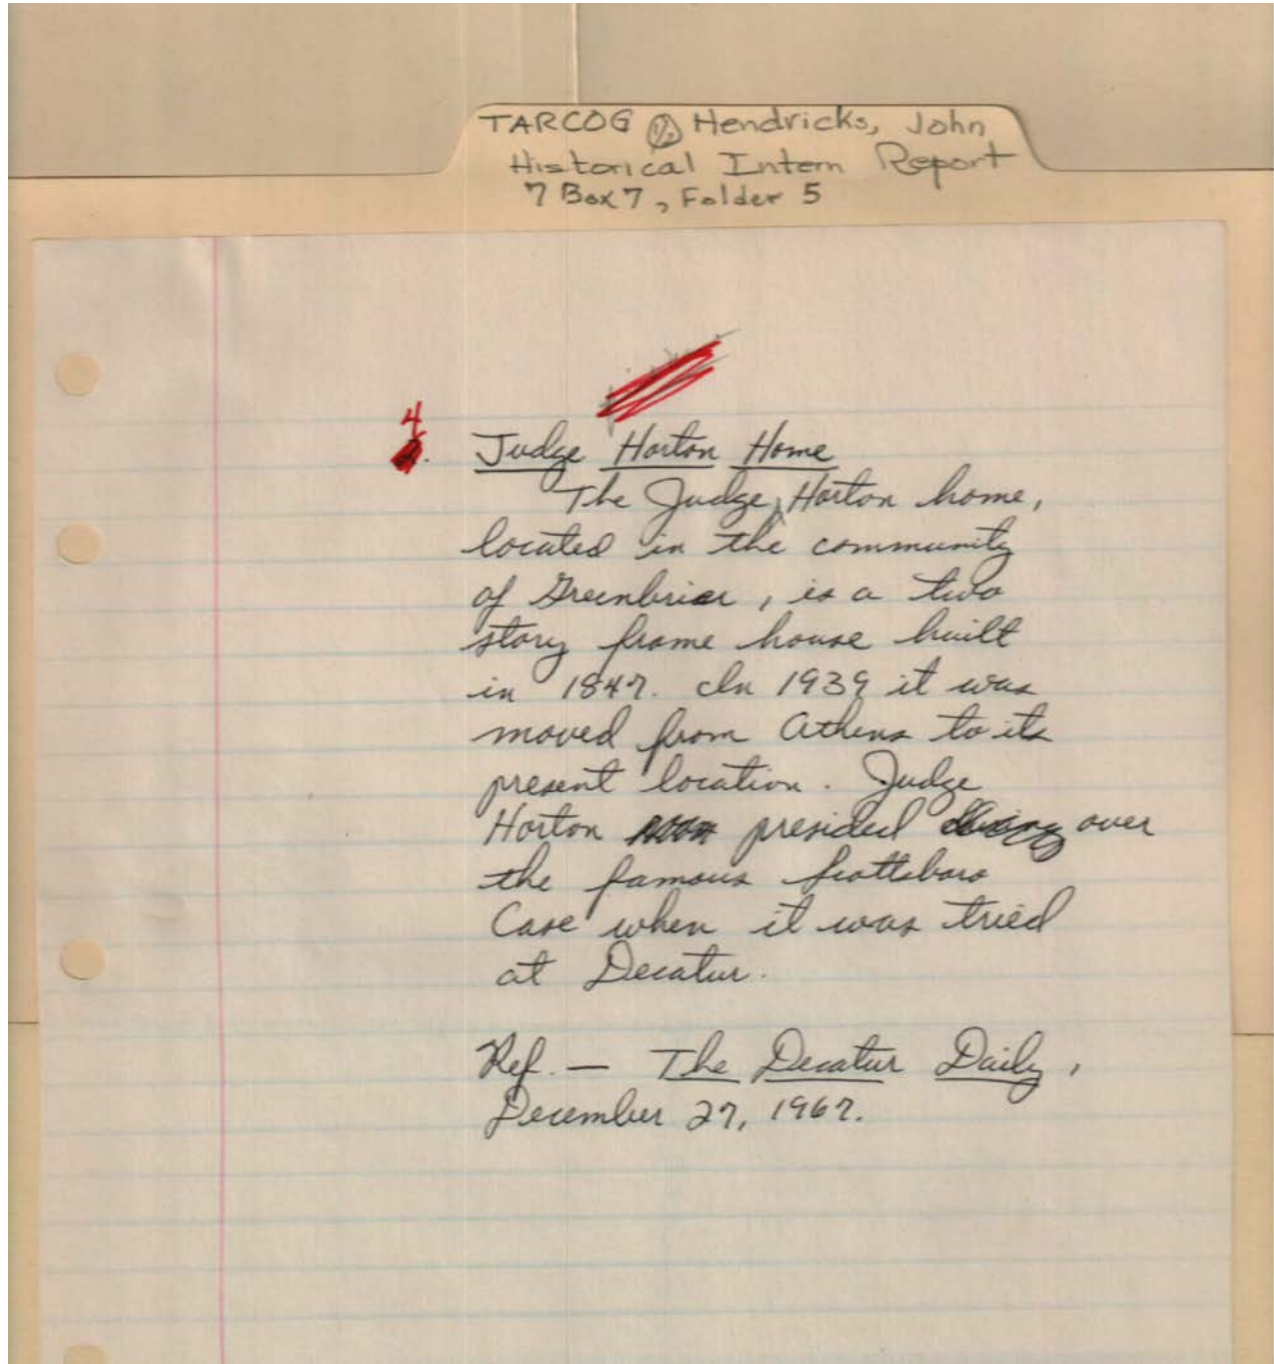 TARCOG Hendricks, John
Historical Intern Report
7 Box 7, Folder 5
4.
Judge Horton Home
The Judge Horton home,
located in the community
of Greenbrier, is a two
story frame house built
in 1847. In 1939 it was
moved from Athens to its
present location. Judge
Horton presided over
the famous Scottsboro
Case when it was tried
at Decatur.
Ref. — The Decatur Daily,
December 27, 1967.